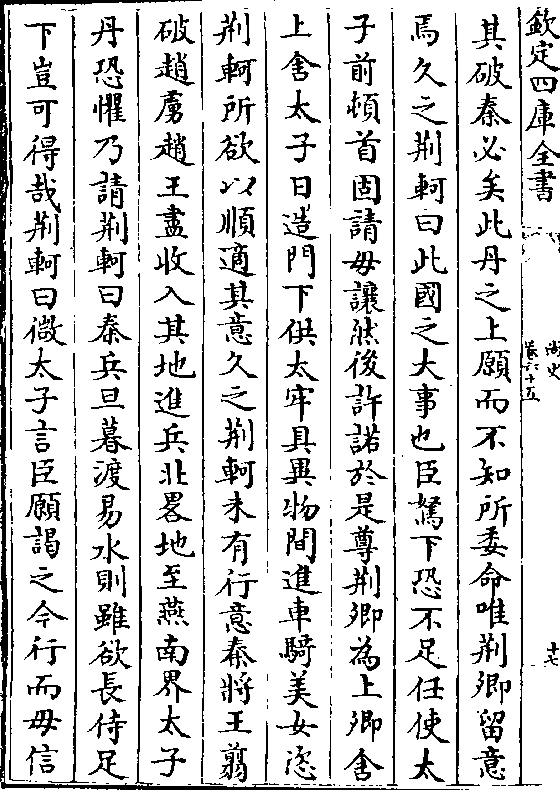 欽定四庫全書
尚史
卷六十五
十七
其破秦必矣此丹之上願而不知所委命唯荆卿留意
焉久之荆軻曰此國之大事也臣駑下恐不足任使太
子前頓首固請毋讓然後許諾於是尊荆卿為上卿舍
上舍太子日造門下供太牢具異物間進車騎美女恣
荆軻所欲以順適其意久之荆軻未有行意秦將王翦
破趙虜趙王盡收入其地進兵北畧地至燕南界太子
丹恐懼乃請荆軻曰秦兵旦暮渡易水則雖欲長侍足
下豈可得哉荆軻曰微太子言臣願謁之今行而毋信